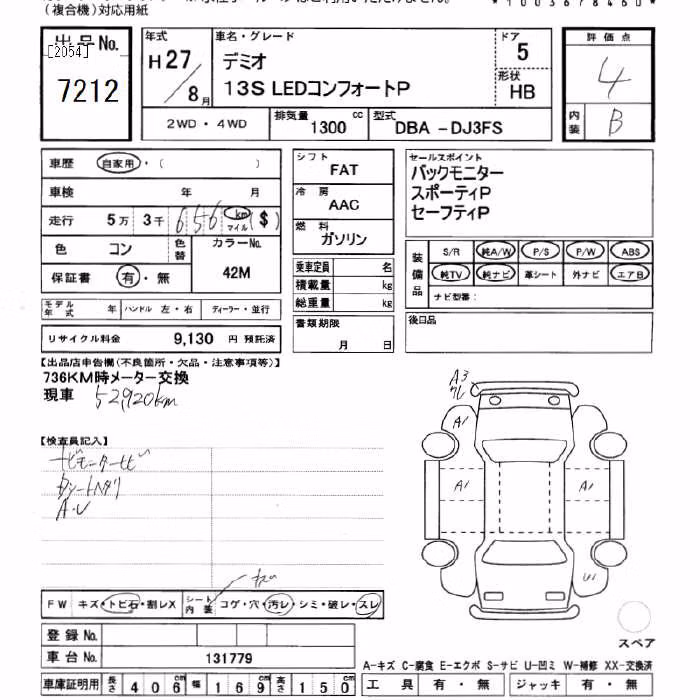 (複合機)対応用紙
*1003678460*
出品No.
[2054]
7212
年式
H27/8月
車名・グレード
デミオ
13S LEDコンフォートP
ドア
5
形状
HB
評価点
4
内装
B
2WD・4WD
排気量 1300 cc
型式 DBA -DJ3FS
車歴 自家用・( )
車検 年 月
走行 5万 3千 656 km マイル ($)
色 コン
色替
カラーNo.
42M
保証書 有・無
モデル年式 年
ハンドル 左・右
ディーラー・並行
リサイクル料金 9,130 円 預託済
シフト
FAT
冷房
AAC
燃料
ガソリン
乗車定員 名
積載量 kg
総重量 kg
書類期限
月 日
セールスポイント
バックモニター
スポーティP
セーフティP
装備品
S/R 純A/W P/S P/W ABS
純TV 純ナビ 革シート 外ナビ エアB
ナビ型番:
後日品
【出品店申告欄(不良箇所・欠品・注意事項等)】
736KM時メーター交換
現車 52,920km
【検査員記入】
A・U
A3
A1
A1
A1
U1
FW キズ・トビ石・割レX
シート内装 コゲ・穴・汚レ・シミ・破レ・スレ
登録No.
車台No. 131779
車庫証明用 長さ 406 幅 169 高さ 150
スペア
A-キズ C-腐食 E-エクボ S-サビ U-凹ミ W-補修 XX-交換済
工具 有・無 ジャッキ 有・無